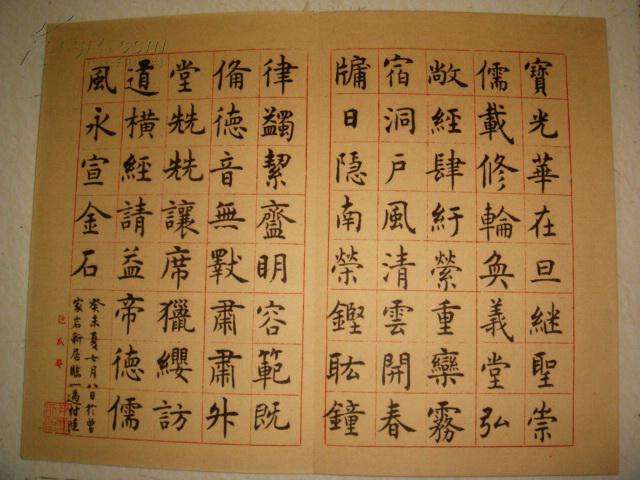 寶光華在旦継聖崇
儒載修輪奐義堂弘
敞經肆紆縈重欒霧
宿洞戶風清雲開春
牖日隐南榮鏗耾鐘
律蠲絜齍明容範既
俻德音無斁肅肅升
堂兟兟讓席獵纓訪
道橫經請益帝德儒
風永宣金石
癸未夏七月八日於曾
家岩新居臨一過付